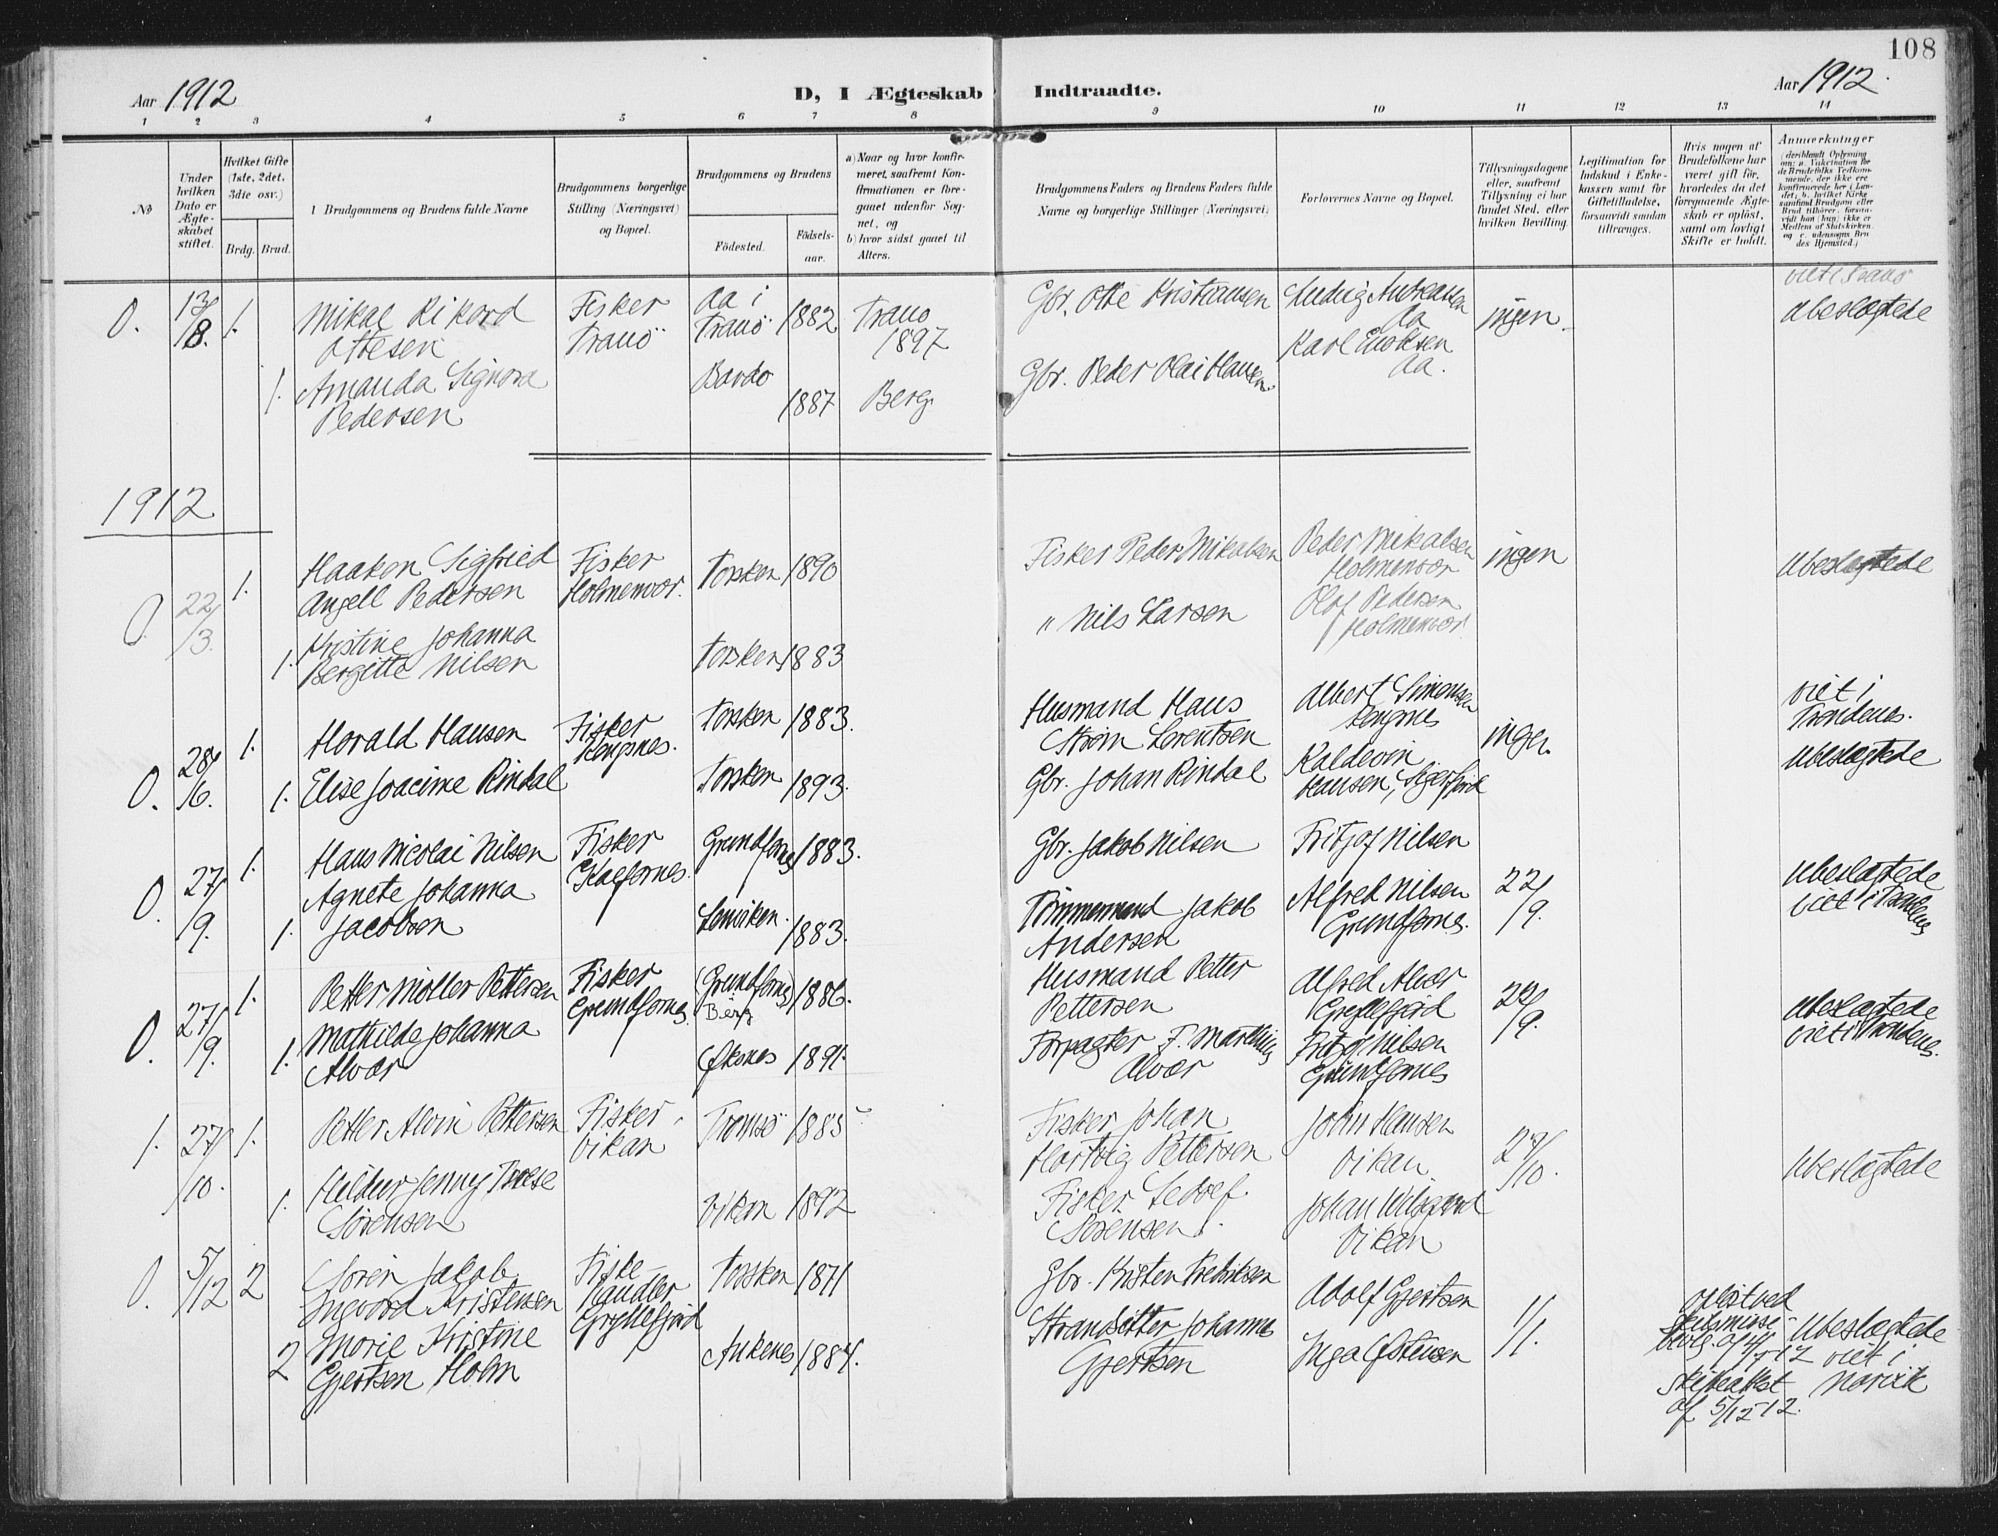 108
Aar 1912
D, I Ægteskab Indtraadte.
Aar 1912.
1 2 3 4 5 6 7 8 9 10 11 12 13 14
No
Under hvilken Dato er Ægteskabet stiftet.
Hvilket Gifte (1ste, 2det, 3die osv.)
Brdg. Brud.
1 Brudgommens og Brudens fulde Navne
Brudgommens borgerlige Stilling (Næringsvei) og Bopæl.
Brudgommens og Brudens
Födested.
Födsels-aar.
a) Naar og hvor konfirmeret, saafremt Konfirmationen er foregaaet udenfor Sognet, og
b) hvor sidst gaaet til Alters.
Brudgommens Faders og Brudens Faders fulde Navne og borgerlige Stillinger (Næringsvei)
Forlovernes Navne og Bopæl.
Tillysningsdagene eller, saafremt Tillysning ei har fundet Sted, efter hvilken Bevilling.
Legitimation for Indskud i Enkekassen samt for Giftetilladelse, forsaavidt saadan tiltrænges.
Hvis nogen af Brudefolkene har været gift för, hvorledes da det foregaaende Ægteskab er oplöst, samt om lovligt Skifte er holdt.
Anmærkninger
0. 13/8. 1.
Mikal Rikard Ottesen
Fisker Tranö
Aa i Tranö 1882
Trano 1897
Gbr. Otte Kristiansen
Ludvig Andreassen Aa
Karl Enoksen Aa.
ingen
viet i Tranö
Ubeslægtede
1.
Amanda Signora Pedersen
Bardo 1887
Berg
Gbr. Peder Olai Hansen
1912
0. 22/3. 1.
Haakon Sigfried
Angell Pedersen
Fisker
Holmenvær.
Torsken 1890
Fisker Peder Mikalsen
Peder Mikalsen
Holmenvær
ingen
Ubeslegtede
1.
Kristine Johanna
Bergitte Nilsen
Torsken 1883
" Nils Larsen
Olaf Pedersen
Holmenvær.
0. 28/6. 1.
Horald Hansen
Fisker
Torsken 1883.
Husmand Hans
Strøm Lorentsen
Albert Simonsen
ingen
viet i
Trondenes.
Ubeslegtede
1.
Elise Joacime Rindal
Torsken 1893.
Gbr. Johan Rindal
Kaldevin
Hansen, Sigerfjord
0. 27/9. 1.
Hans Nicolai Nilsen
Fisker
Grundfornes 1883.
Gbr. Jakob Nilsen
Fritjof Nilsen
22/9.
Ubeslægtede
viet i Trondenes
1.
Agnete Johanna
Jacobsen
Lenviken. 1883.
Tømmermand Jakob
Andersen
Alfred Nilsen
Grundfornes.
0. 27/9. 1.
Petter Møller Pettersen
Fisker
Grundfornes.
(Grundfornes) 1886.
Berg
Husmand Petter
Pettersen
Alfred Alvær
Gryllefjord
22/9.
Ubeslægtede
viet i Trondenes.
1.
Mathilde Johanna
Alvær
Øksnes 1891.
Forpagter F. Marthinius
Alvær
Fritjof Nilsen
Grundfornes
1. 27/10. 1.
Petter Alvin Pettersen
Fisker
Vikan
Tromsö 1885
Fisker Johan
Hartvig Pettersen
John Hansen
Vikan
27/10.
Ubeslægtede
1.
Hildur Jenny
Sørensen
Vikan 1892
Fisker
Sørensen
Johan
Vikan
0. 5/12 2
Søren Jakob
Ingvard Kristensen
Fiske-
handler
Gryllefjord
Torsken 1871
Gbr. Kristen Fredriksen
Adolf Gjertsen
1/1.
opløst ved
skilsmisse
bevilg. af
Skifteattest
af 5/12-12.
Ubeslægtede
viet i
Narvik
2
Marie Kristine
Gjertsen Holm
Ankenes 1884.
Strandsitter Johannes
Gjertsen
Inga Østensen